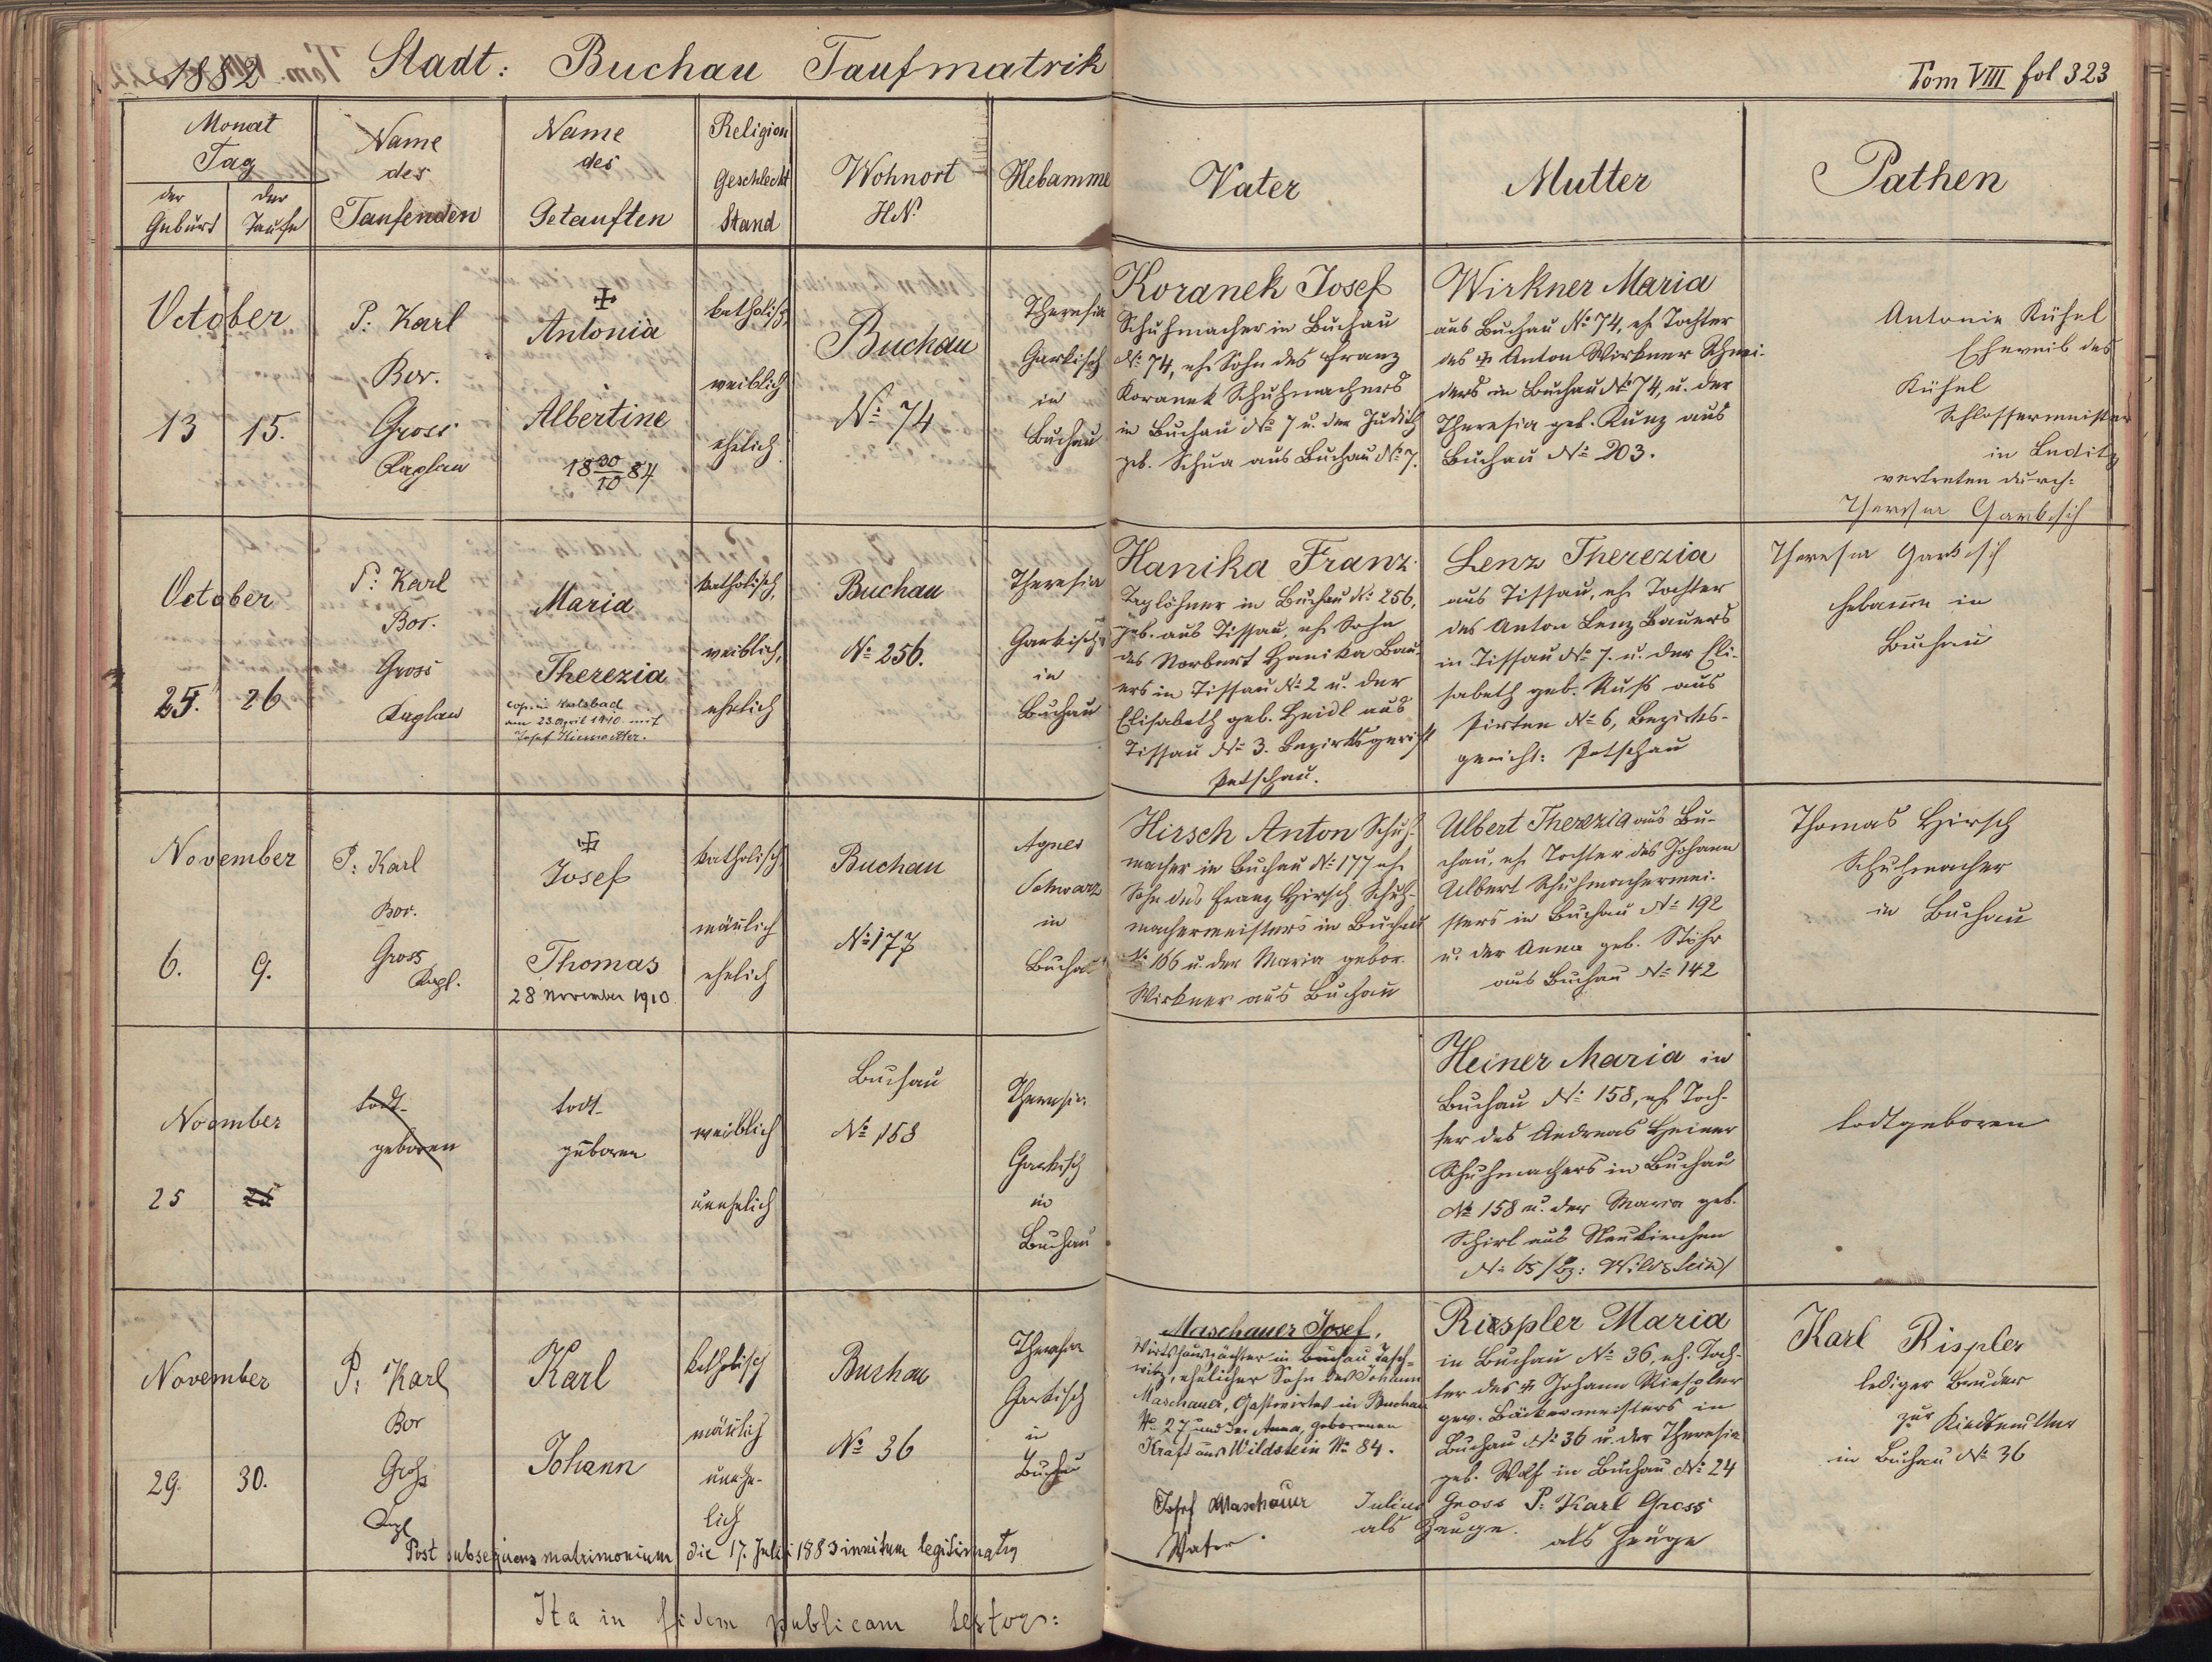 1882 Stadt: Buchau Taufmatrik
Tom VIII fol 323
Monat
Tag
der Geburt
der Taufe
Name
des
Taufenden
Name
des
Getauften
Religion
Geschlecht
Stand
Wohnort
HN.
Hebamme
Vater
Mutter
Pathen
October
13
15.
P: Karl
Bor.
Gross
Kaplan
✠
Antonia
Albertine
18 30/10 84
katholisch,
weiblich
ehelich.
Buchau
No 74
Theresia
Garkisch
in
Buchau
Koranek Josef
Schuhmacher in Buchau
No 74, eh. Sohn des Franz
Koranek Schuhmachers
in Buchau No 7 u. der Judith
geb. Schua aus Buchau No 7.
Wirkner Maria
aus Buchau No 74, eh. Tochter
des ✠ Anton Wirkner Schnei-
ders in Buchau No 74, u. der
Theresia geb. Kunz aus
Buchau No 203.
Antonie Kühnl
Eheweib des
Kühnl
Schlossermeister
in Luditz
vertreten durch:
Theresia Garkisch
October
25.
26
P: Karl
Bor.
Gross
Kaplan
Maria
Therezia
cop. in Karlsbad
am 23. April 1910 mit
Josef
katholisch,
weiblich,
ehelich
Buchau
No 256.
Theresia
Garkisch
in
Buchau
Hanika Franz
Taglöhner in Buchau No 256,
geb. aus Tissau, eh. Sohn
des Norbert Hanika Bau-
ers in Tissau No 2 u. der
Elisabeth geb. Heidl aus
Tissau No 3. Bezirksgericht
Petschau.
Lenz Therezia
aus Tissau, eh. Tochter
des Anton Lenz Bauers
in Tissau No 7. u. der Eli-
sabeth geb. Russ aus
Pirten No 6, Bezirks-
gericht: Petschau
Theresia Garkisch
Hebamme in
Buchau
November
6.
9.
P: Karl
Bor.
Gross
Kapl.
✠
Josef
Thomas
28 November 1910.
katholisch
mäñlich
ehelich
Buchau
No 177
Agnes
Schwarz
in
Buchau
Hirsch Anton Schuh-
macher in Buchau No 177 eh.
Sohn des Franz Hirsch Schuh-
machermeisters in Buchau
No 166 u. der Maria gebor.
Wirkner aus Buchau
Albert Therezia aus Bu-
chau, eh. Tochter des Johann
Albert Schuhmachermei-
sters in Buchau No 192
u. der Anna geb. Stöhr
aus Buchau No 142
Thomas Hirsch
Schuhmacher
in Buchau
November
25
25
todt-
geboren
todt-
geboren
weiblich
unehelich
Buchau
No 158
Theresia
Garkisch
in
Buchau
Heiner Maria in
Buchau No 158, eh. Toch-
ter des Andreas Heiner
Schuhmachers in Buchau
No 158 u. der Maria geb.
Schirl aus Neukirchen
No 65 /Bz: Wildstein/
todtgeboren
November
29.
30.
P: Karl
Bor
Groß
Kapl
Karl
Johann
katholisch
mäñlich
unehe-
lich
Buchau
No 36
Theresia
Garkisch
in
Buchau
Maschauer Josef,
Wirtshauspächter in Buchau Tasch-
witz, ehelicher Sohn des Johann
Maschauer, Gastwirtes in Buchau
No 27 und der Anna, geborenen
Kraft aus Wildstein No 84.
Riespler Maria
in Buchau No 36, eh. Toch-
ter des ✠ Johann Riespler
gew. Bäckermeisters in
Buchau No 36 u. der Theresia
geb. Wolf in Buchau No 24
Karl Rispler
lediger Bruder
zur Kindsmutter
in Buchau No 36
Josef Maschauer
Vater.
Julius Gross
als Zeuge.
P: Karl Gross
als Zeuge
Post subsequens matrimonium die 17. Juli 1883 initum legitimatus
Ita in fidem publicam testor: